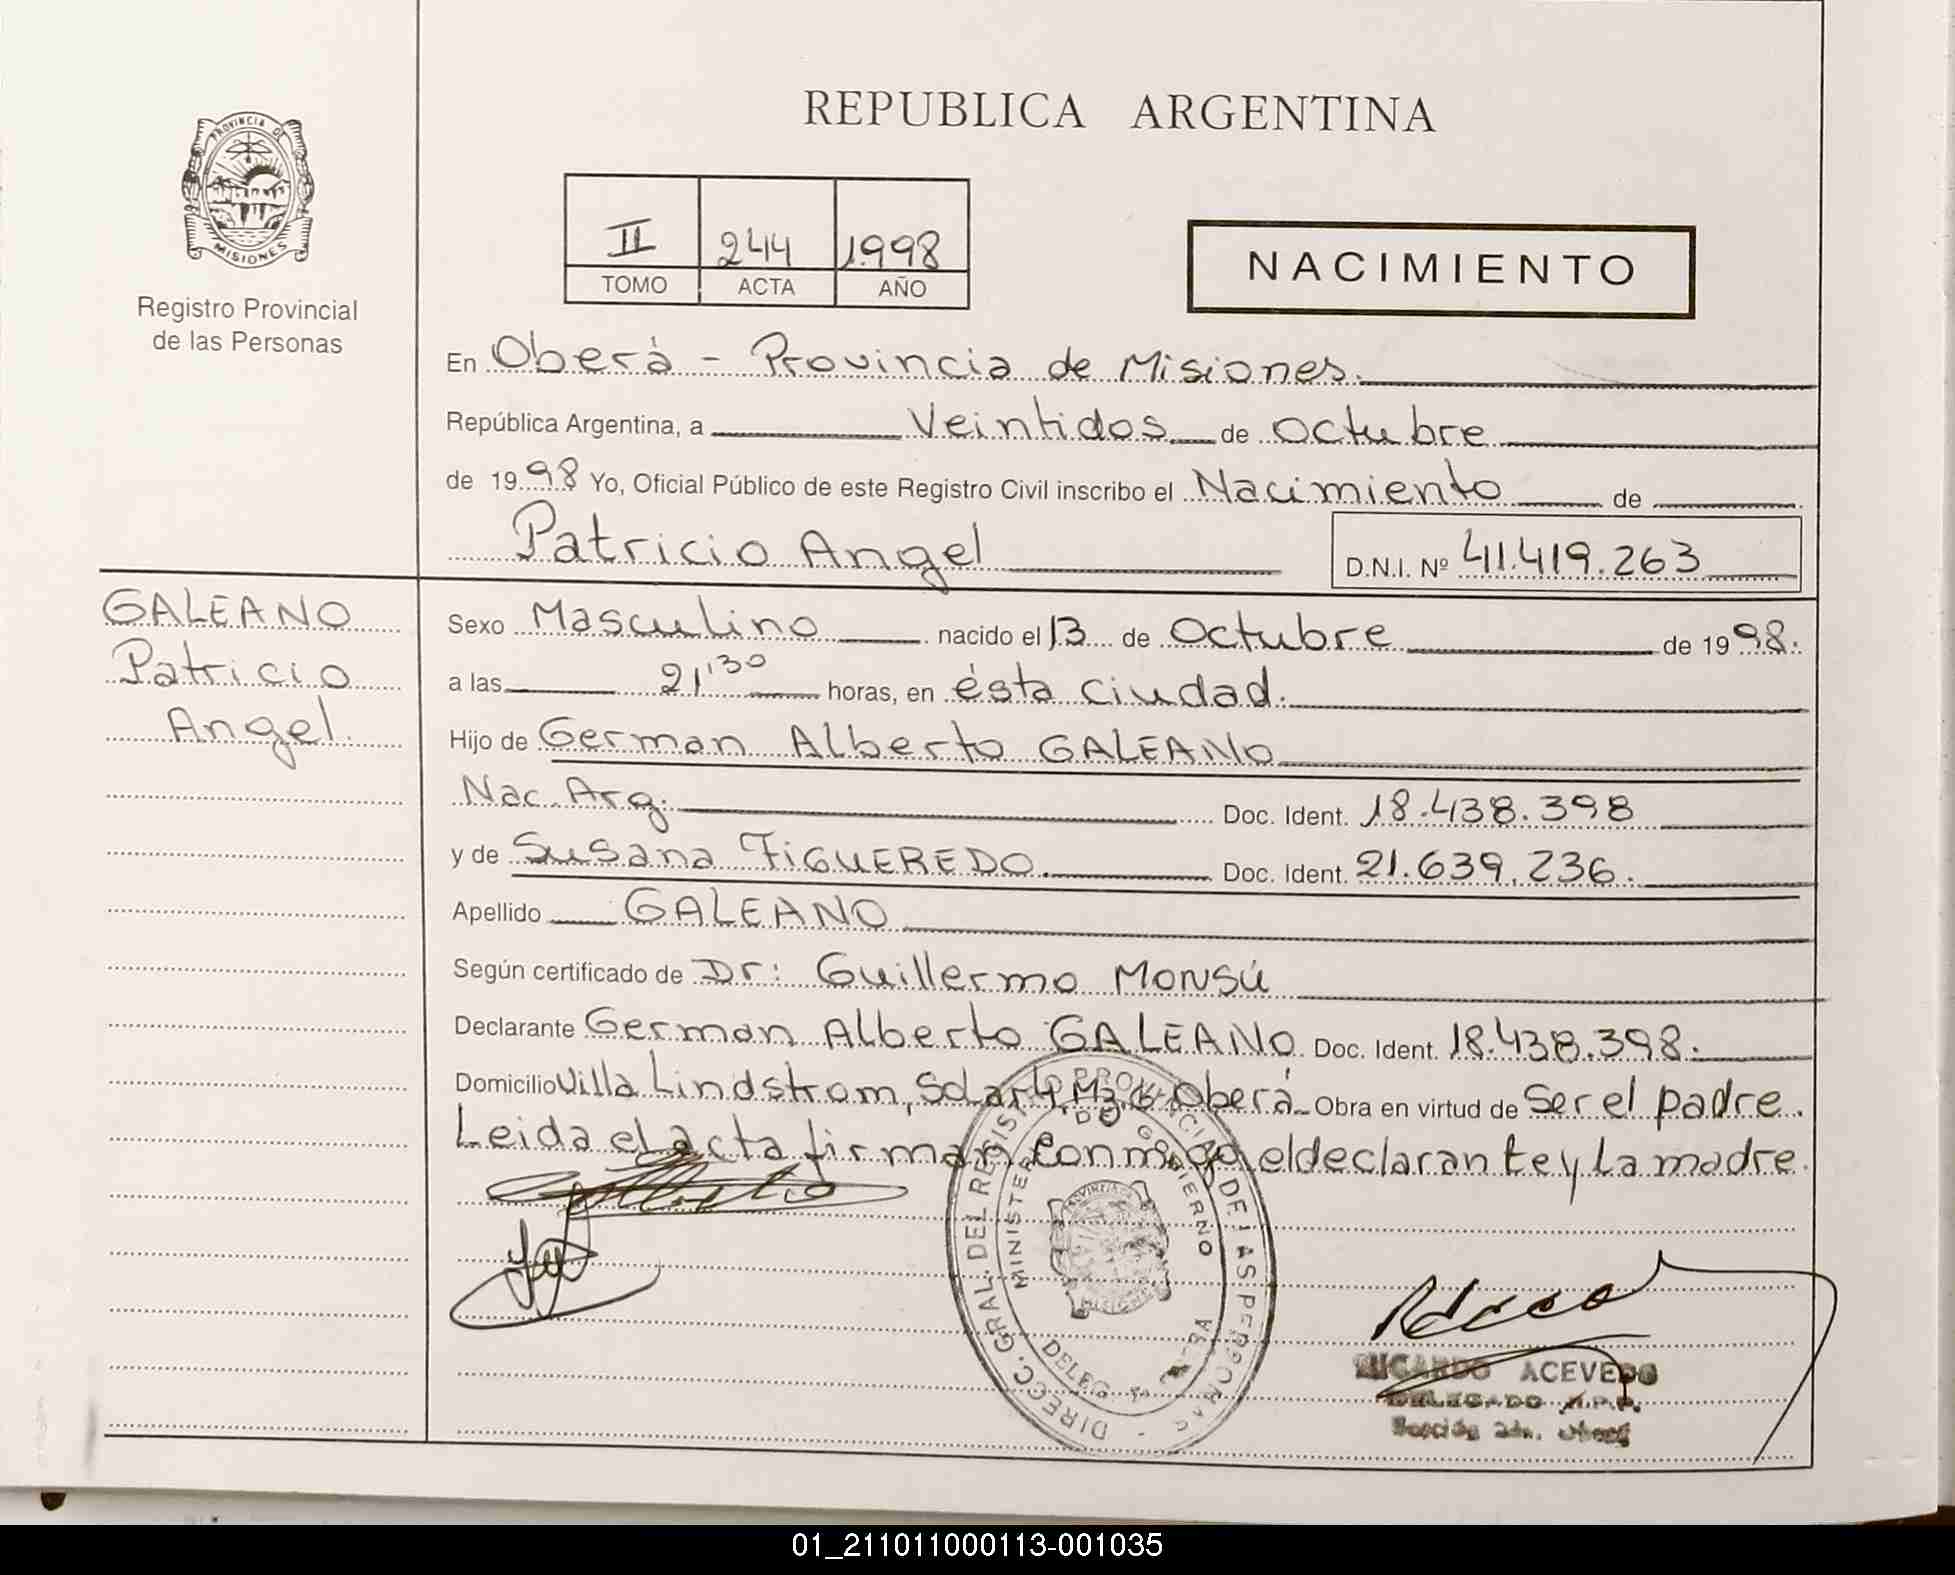 REPUBLICA ARGENTINA
PROVINCIA DE
MISIONES
Registro Provincial
de las Personas
II 244 1.998
TOMO ACTA AÑO
NACIMIENTO
En Oberà - Provincia de Misiones.
República Argentina, a Veintidos de Octubre
de 1998 Yo, Oficial Público de este Registro Civil inscribo el Nacimiento de
Patricio Angel D.N.I. Nº 41.419.263
GALEANO
Patricio
Angel.
Sexo Masculino nacido el 13 de Octubre de 1998.
a las 21'30 horas, en ésta ciudad.
Hijo de German Alberto GALEANO
Nac. Arg. Doc. Ident. 18.438.398
y de Susana FIGUEREDO. Doc. Ident. 21.639.236.
Apellido GALEANO
Según certificado de Dr: Guillermo Monsú
Declarante German Alberto GALEANO. Doc. Ident. 18.438.398.
Domicilio Villa Lindstrom, Solar 4, Mz 6 Oberá. Obra en virtud de Ser el padre.
Leida el acta firman conmigo el declarante y La madre.
DIRECC. GRAL. DEL REGISTRO PROVINCIAL DE LAS PERSONAS
MINISTERIO DE GOBIERNO
MISIONES
RICARDO ACEVEDO
DELEGADO R.P.P.
Sección 2da. Oberá
01_211011000113-001035